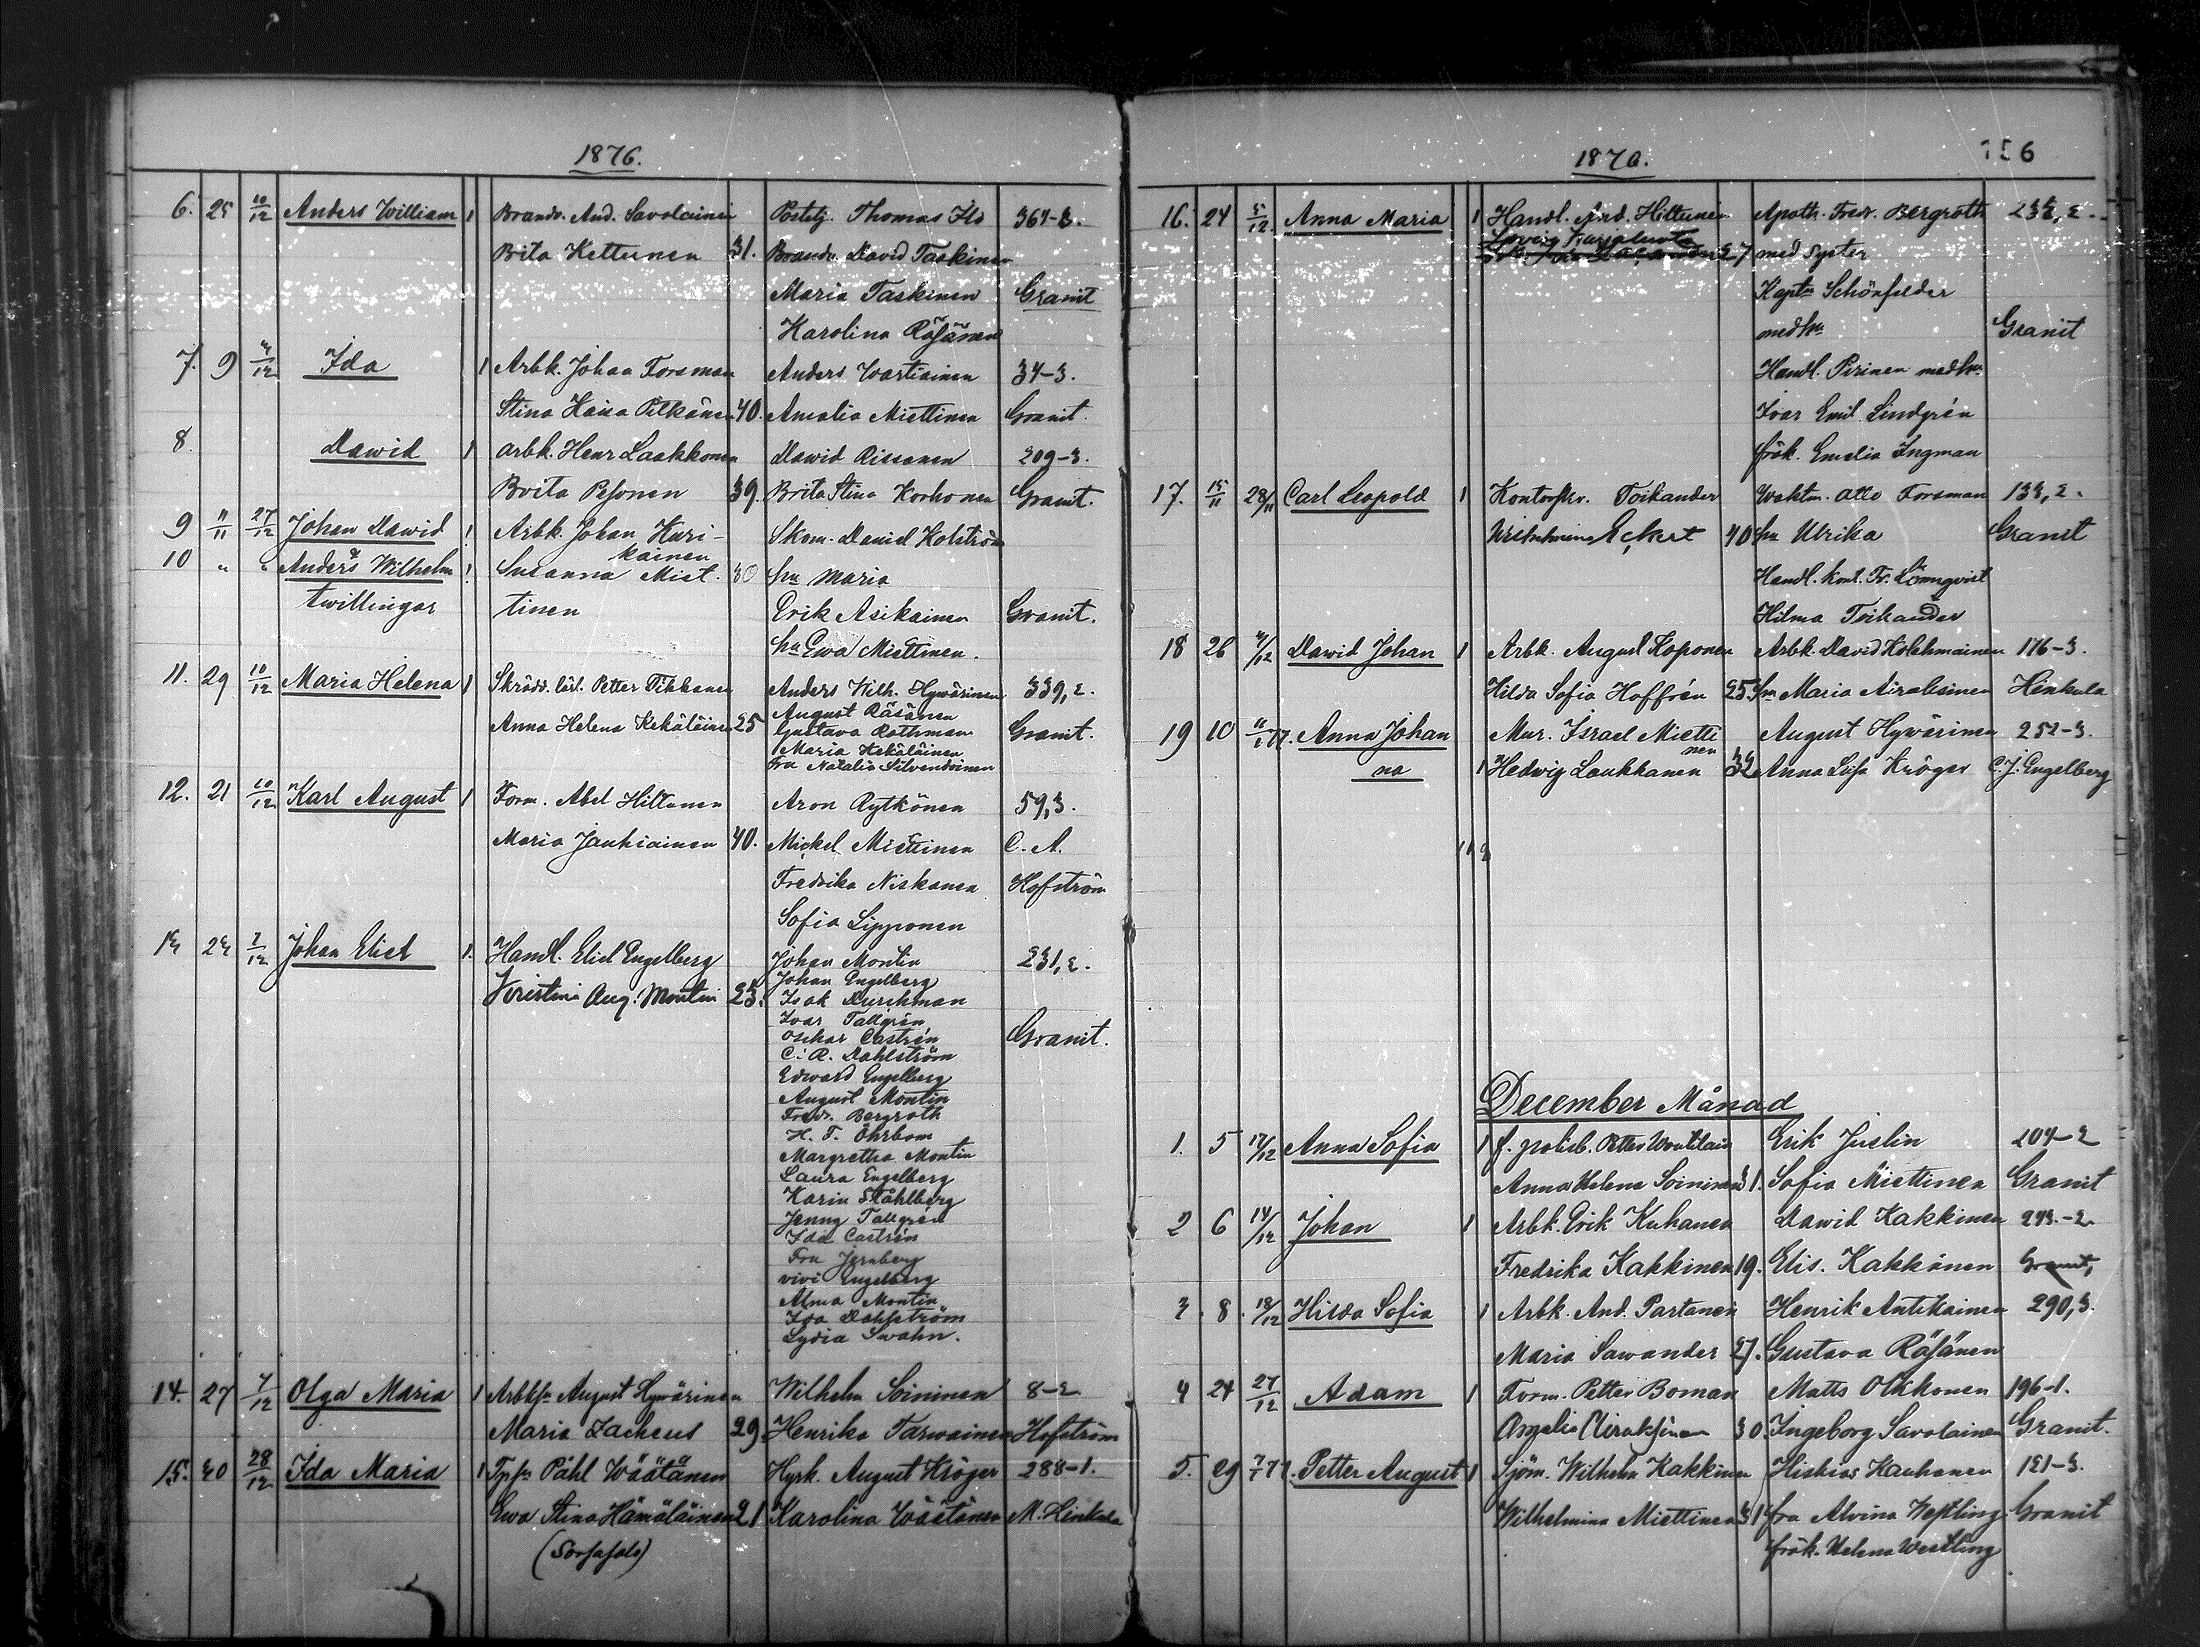 1876.
6. 25 10/12 Anders William 1 Brandv. And. Savolainen Postilj. Thomas Ild 364-3.
Brita Kettunen 31. Brandv. David Taskinen
Maria Taskinen Granit
Karolina Räsänen
7. 9 /12 Ida 1 Arbk. Johan Forsman Anders Wartiainen 34-3.
Stina Kaisa Pitkänen 40. Amalia Miettinen Granit.
8. Dawid 1 Arbk. Henr Laakkonen Dawid Rissanen 209-3.
Brita Pesonen 39. Brita Stina Korhonen Granit.
9 11/11 27/12 Johan Dawid 1 Arbk. Johan Kuri- Skom. David Holström
10 " " & Anders Wilhelm 1 kainen
Susanna Miet- 30 hu Maria
twillingar tinen Erik Asikainen Granit.
hu Ewa Miettinen.
11. 29 10/12 Maria Helena 1 Skrädd. lärl. Petter Tikkanen Anders Wilh. Hyvärinen 339,2.
August Räsänen
Anna Helena Kekäläinen 25 Gustava Rothman Granit.
Maria Kekäläinen
Fru Natalia Silvendoinen
12. 21 10/12 Karl August 1 Form. Abel Hiltunen Aron Rytkönen 59,3.
Maria Jauhiainen 40. Mickel Miettinen C. A.
Fredrika Niskanen Hofström
Sofia Lipponen
13 23 7/12 Johan Eliel 1. Handl. Eliel Engelberg Johan Montin 231,2.
Johan Engelberg
Kristina Aug. Montin 23. Isak Durchman
Ivar Tallgrén
Oskar Castrén Granit.
C. R. Dahlström
Edward Engelberg
August Montin
Fredr. Bergroth
H. T. Öhrbom
Margretha Montin
Laura Engelberg
Karin Ståhlberg
Jenny Tallgrén
Ida Castrén
Fru Jernberg
Vivi Engelberg
Alma Montin
Ida Dahlström
Lydia Swahn.
14. 27 7/12 Olga Maria 1 August Hyvärinen Wilhelm Soininen 8-2
Maria Zacheus 29. Henrika Tarwainen Hofström
15. 30 28/12 Ida Maria 1 Påhl Wäätänen Hyrk. August Kröger 288-1.
Ewa Stina Hämäläinen 21 Karolina Wäätänen M. Henkula
(Sorsasalo)
1876. 156
16. 24 5/12 Anna Maria 1 Handl. And. Hiltunen Apoth. Fredr. Bergroth 2,2.
27 med syster
Kapt:n Schönfelder
med hu Granit
Handl. Pirinen med hu
Ivar Emil Lindgrén
frök. Emelia Ingman
17. 15/11 28/11 Carl Leopold 1 Kontorskr. Toikander Waktm. Otto Forsman 133,2.
Wilhelmina Eckert 40 hu Ulrika Granit
Handl. kont. Fr. Lönnqvist
Hilma Toikander
18 26 4/12 Dawid Johan 1 Arbk. August Koponen Arbk. David Kolehmainen 176-3.
Hilda Sofia Hoffrén 25. hu Maria Airaksinen Henkula
19 10 77. Anna Johan Mur. Israel Mietti August Hyvärinen 252-3.
nen
na 1 Hedwig Laukkanen 32 Anna Lisa Kröger C. J. Engelberg
11 8
December Månad
1. 5 17/12 Anna Sofia 1 f. polisb. Petter Woutilain Erik Juslin 204-2
Anna Helena Soininen 31. Sofia Miettinen Granit
2 6 14/12 Johan 1 Arbk. Erik Kuhanen Dawid Kakkinen 243.-2.
Fredrika Kakkinen 19. Elis. Kakkinen Granit,
3. 8. 18/12 Hilda Sofia 1 Arbk. And. Partanen Henrik Antikainen 290,3.
Maria Sawander 27. Gustava Räsänen
4 24 27/12 Adam 1 Form. Petter Boman Matts Olkkonen 196-1.
Airaksinen 30. Ingeborg Savolainen Granit.
5. 29 7/1 77. Petter August 1 Sjöm. Wilhelm Kakkinen Hiskias Kauhanen 121-3.
Wilhelmina Miettinen 31 fru Alvina Westling Granit
frök. Helena Westling